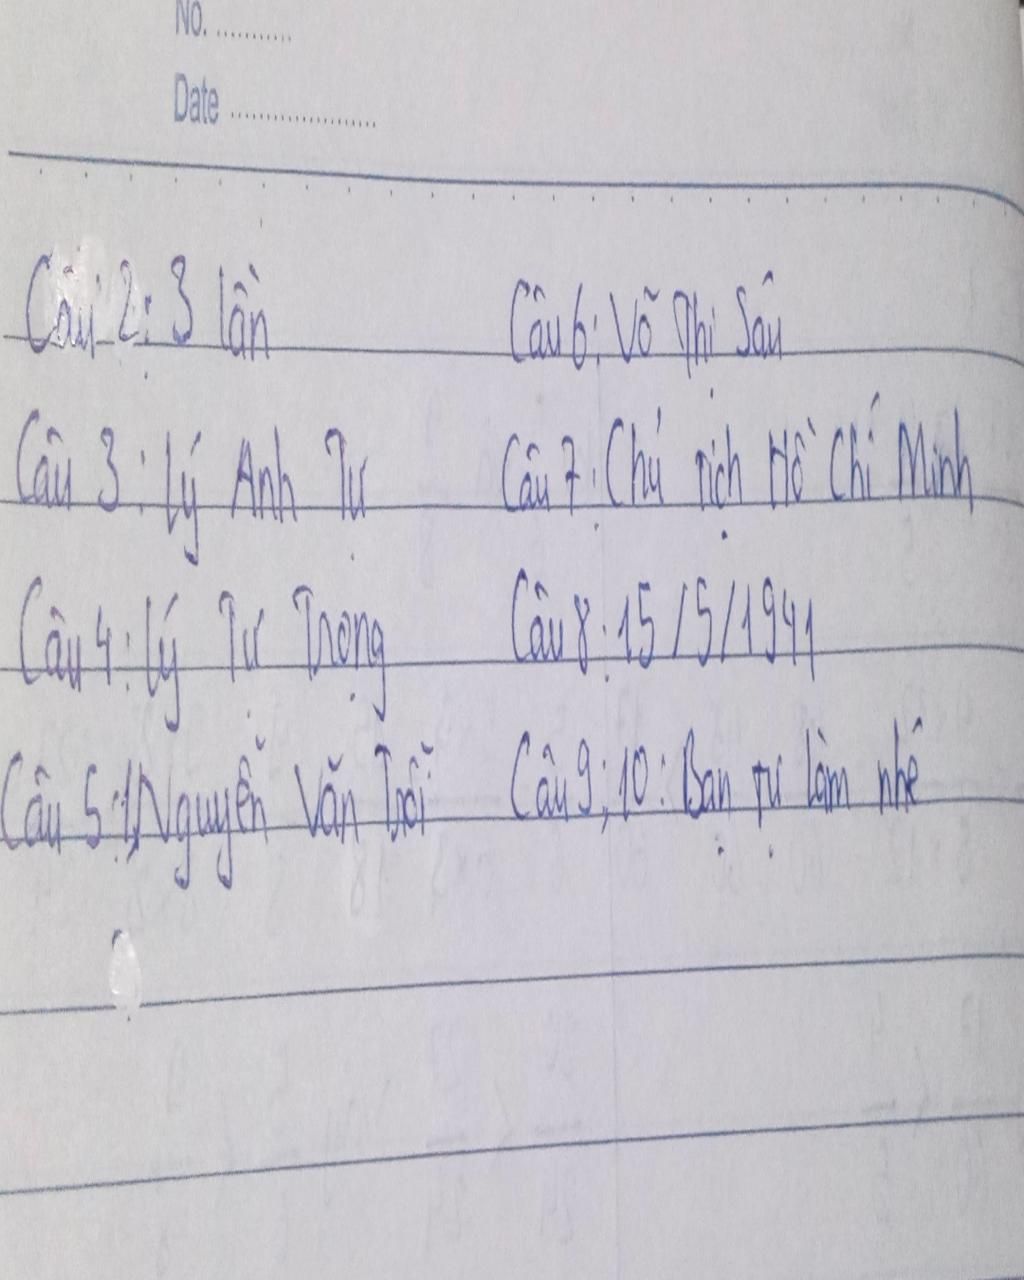 No. ...........
Date .....................
Câu 2: 3 lần
Câu 3: Lý Anh Tự
Câu 4: Lý Tự Trọng
Câu 5: 1, Nguyễn Văn Trỗi
Câu 6: Võ Thị Sáu
Câu 7: Chủ tịch Hồ Chí Minh
Câu 8: 15/5/1941
Câu 9; 10: Bạn tự làm nhé